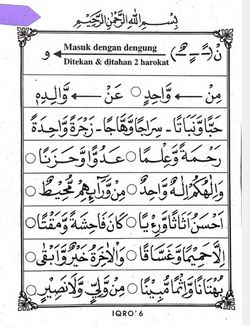 بِسْمِ اللهِ الرَّحْمٰنِ الرَّحِيْمِ
نْ (ـًــٍــٌ) Masuk dengan dengung و
Ditekan & ditahan 2 harokat
مِنْ ← وَّاحِدٍ ○ عَنْ ← وَّالِدِهٖ
حَبًّا وَّنَبَاتًا - سِرَاجًا وَّهَّاجًا - زَجْرَةٌ وَّاحِدَةٌ
رَحْمَةً وَّعِلْمًا ○ عَدُوًّا وَّحَزَنًا ○
وَاِلٰهُكُمْ اِلٰهٌ وَّاحِدٌ ○ مِنْ وَّرَآئِهِمْ مُّحِيْطٌ ○
اَحْسَنُ اَثَاثًا وَّرِءْيًا ○ كَانَ فَاحِشَةً وَّمَقْتًا ○
اِلَّا حَمِيْمًا وَّغَسَّاقًا ○ وَالْاٰخِرَةُ خَيْرٌ وَّاَبْقٰى ○
بُهْتَانًا وَّاِثْمًا مُّبِيْنًا ○ مِنْ وَّلِيٍّ وَّلَا نَصِيْرٍ ○
IQRO' 6